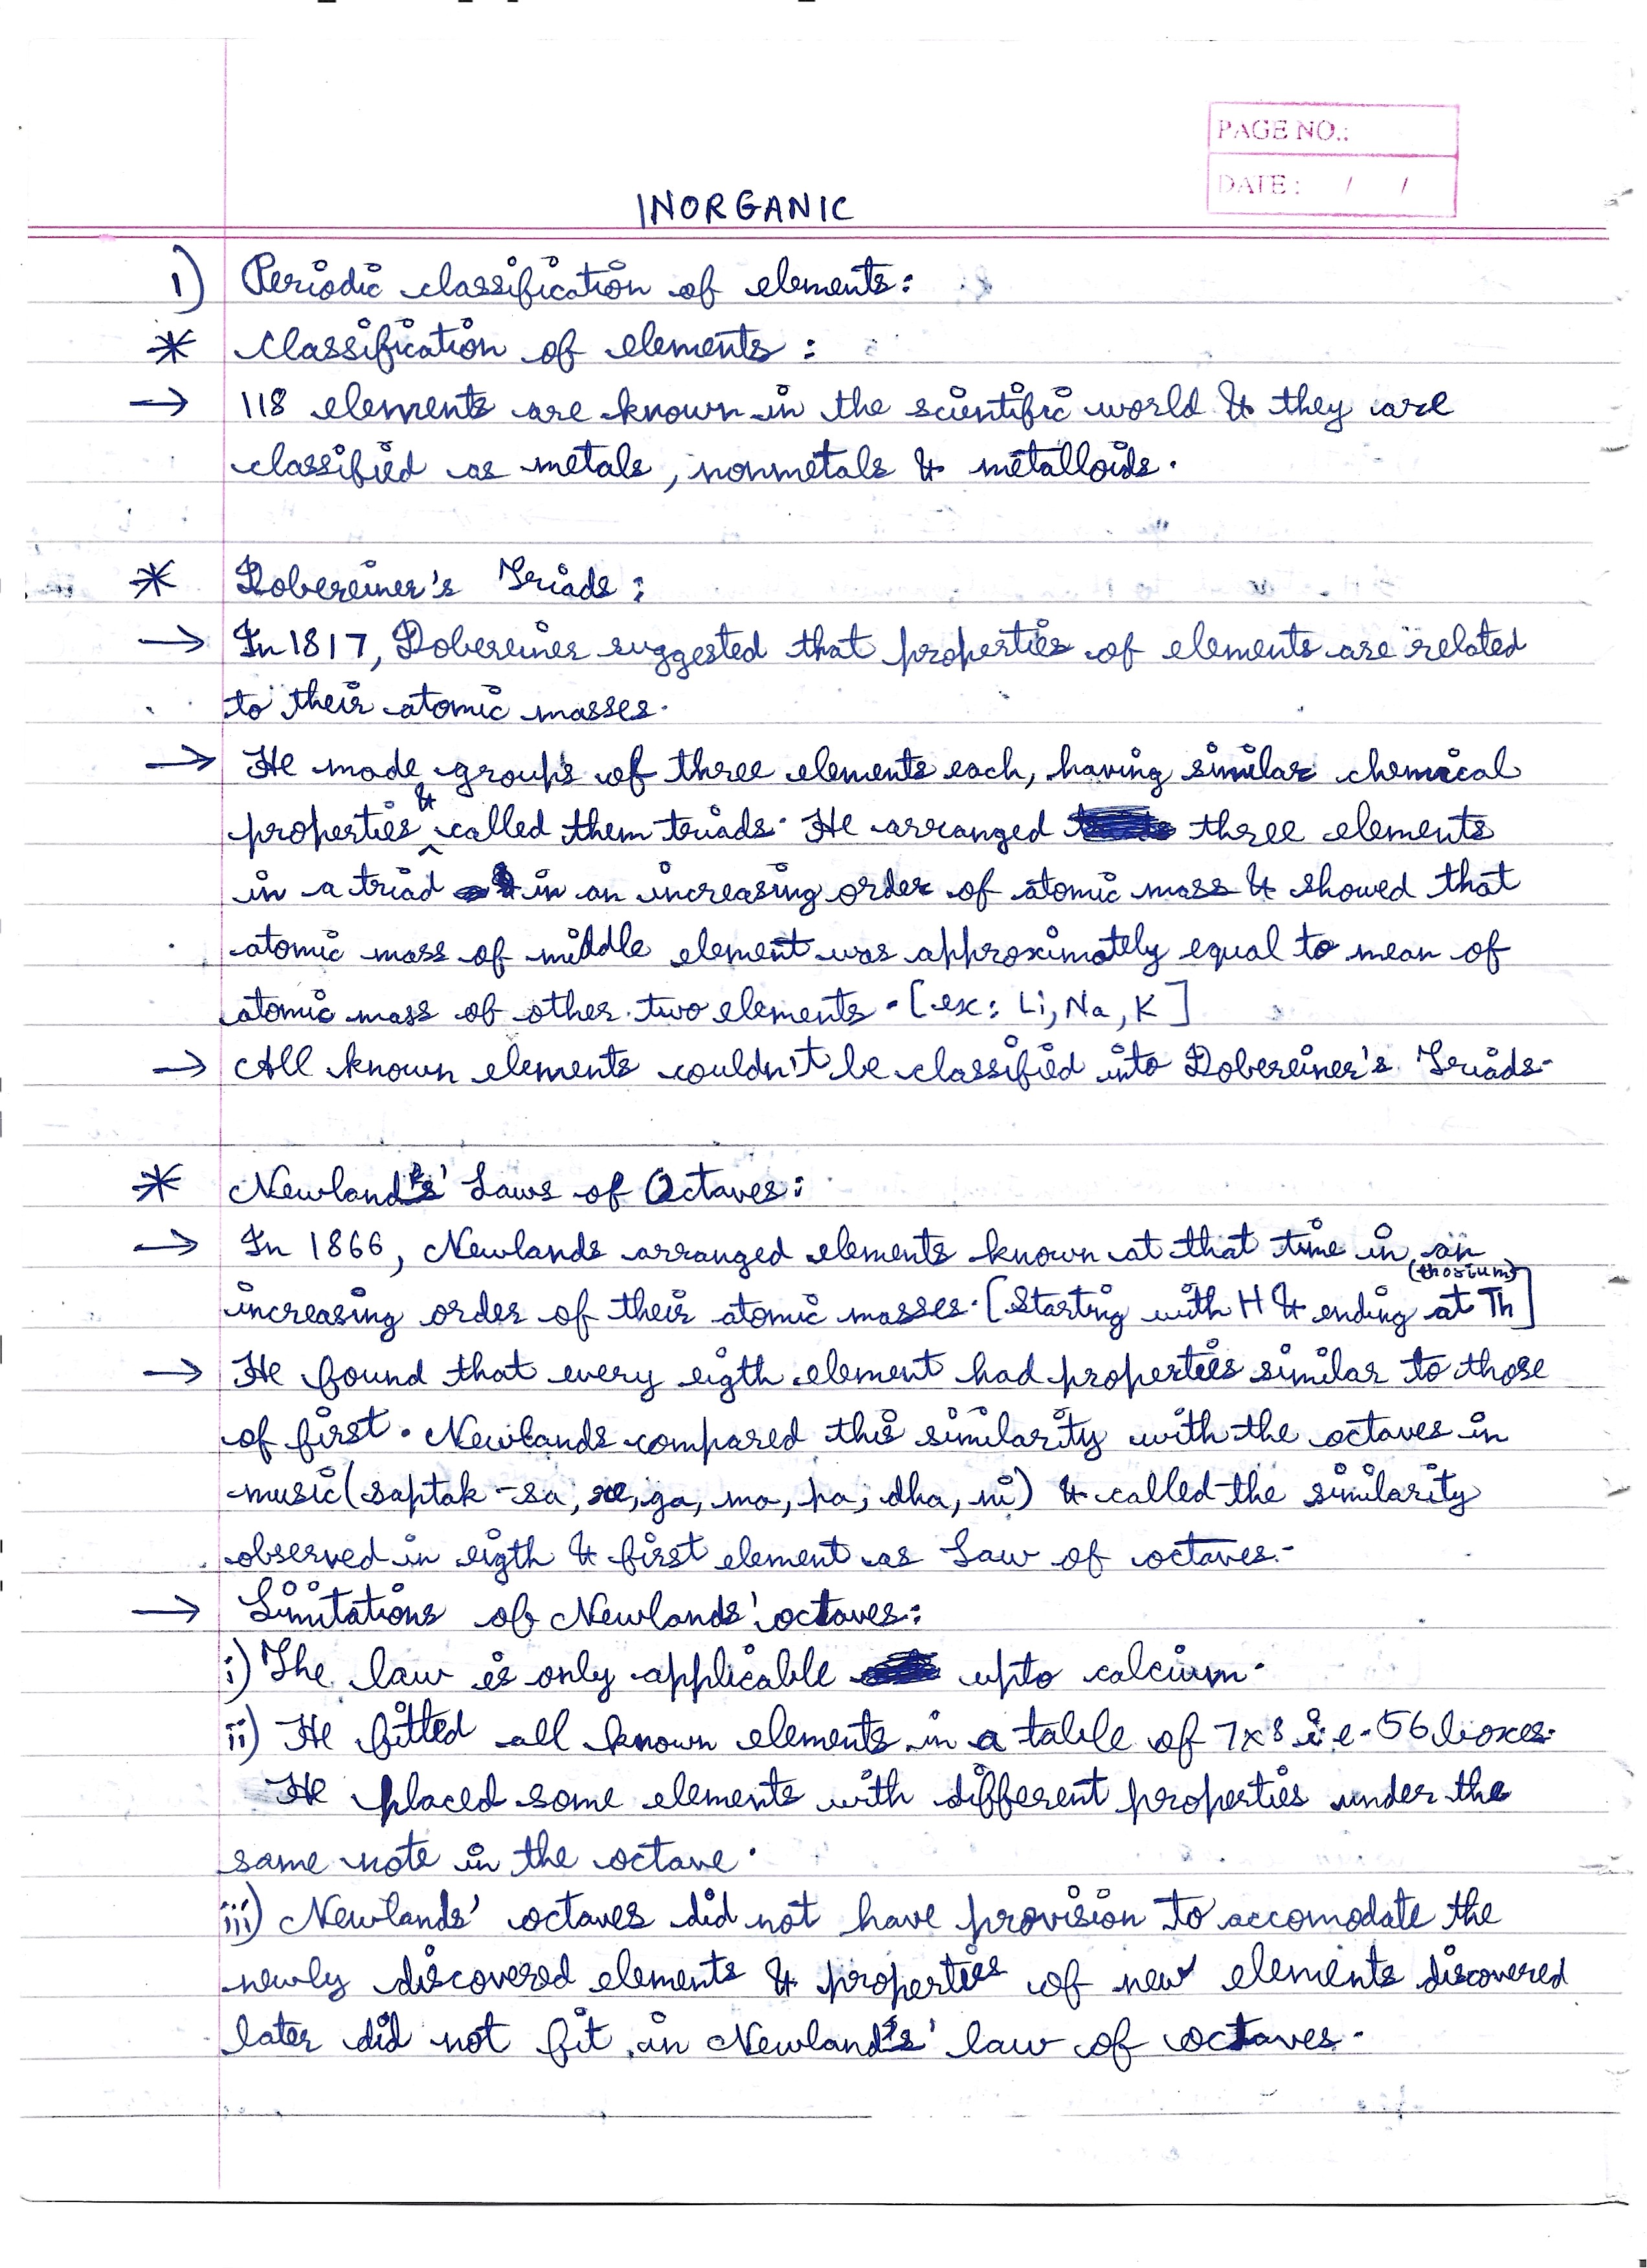 PAGE NO.:
DATE: / /
INORGANIC
1) Periodic classification of elements:
* Classification of elements:
→ 118 elements are known in the scientific world & they are
classified as metals, nonmetals & metalloids.
* Dobereiner's Triads:
→ In 1817, Dobereiner suggested that properties of elements are related
to their atomic masses.
→ He made groups of three elements each, having similar chemical
properties & called them triads. He arranged three elements
in a triad in an increasing order of atomic mass & showed that
atomic mass of middle element was approximately equal to mean of
atomic mass of other two elements. [ex: Li, Na, K]
→ All known elements couldn't be classified into Dobereiner's Triads.
* Newlands' Laws of Octaves:
→ In 1866, Newlands arranged elements known at that time in an
(thorium)
increasing order of their atomic masses. [Starting with H & ending at Th]
→ He found that every eigth element had properties similar to those
of first. Newlands compared this similarity with the octaves in
music (saptak - sa, re, ga, ma, pa, dha, ni) & called the similarity
observed in eigth & first element as Law of octaves.
→ Limitations of Newlands' octaves:
i) The law is only applicable upto calcium.
ii) He fitted all known elements in a table of 7x8 i.e. 56 boxes.
He placed some elements with different properties under the
same note in the octave.
iii) Newlands' octaves did not have provision to accomodate the
newly discovered elements & properties of new elements discovered
later did not fit in Newlands' law of octaves.